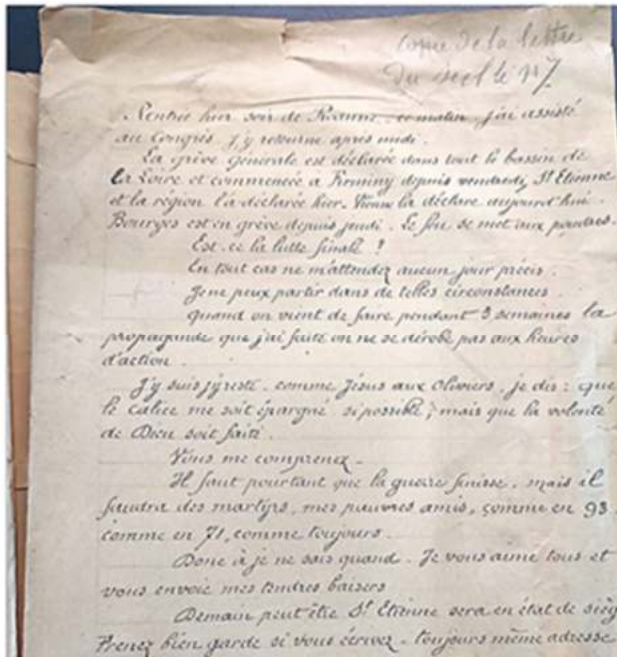 copie de la lettre
du scellé n° 7
Rentrée hier soir de Roanne - ce matin j'ai assisté
au Congrès. J'y retourne après midi.
La grève générale est déclarée dans tout le bassin de
la Loire et commencée à Firminy depuis vendredi, St Etienne
et la région l'a déclarée hier. Vienne la déclare aujourd'hui.
Bourges est en grève depuis jeudi. Le feu se met aux poudres.
Est-ce la lutte finale ?
En tout cas ne m'attendez aucun jour précis.
Je ne peux partir dans de telles circonstances.
Quand on vient de faire pendant 3 semaines la
propagande que j'ai faite on ne se dérobe pas aux heures
d'action.
J'y suis j'y reste. comme Jésus aux Oliviers, je dis : que
le calice me soit épargné si possible, mais que la volonté
de Dieu soit faite.
Vous me comprenez -
Il faut pourtant que la guerre finisse, mais il
faudra des martyrs, mes pauvres amis, comme en 93
comme en 71, comme toujours.
Donc à je ne sais quand. Je vous aime tous et
vous envoie mes tendres baisers
Demain peut être St Etienne sera en état de sièg
Prenez bien garde si vous écrivez - toujours même adresse